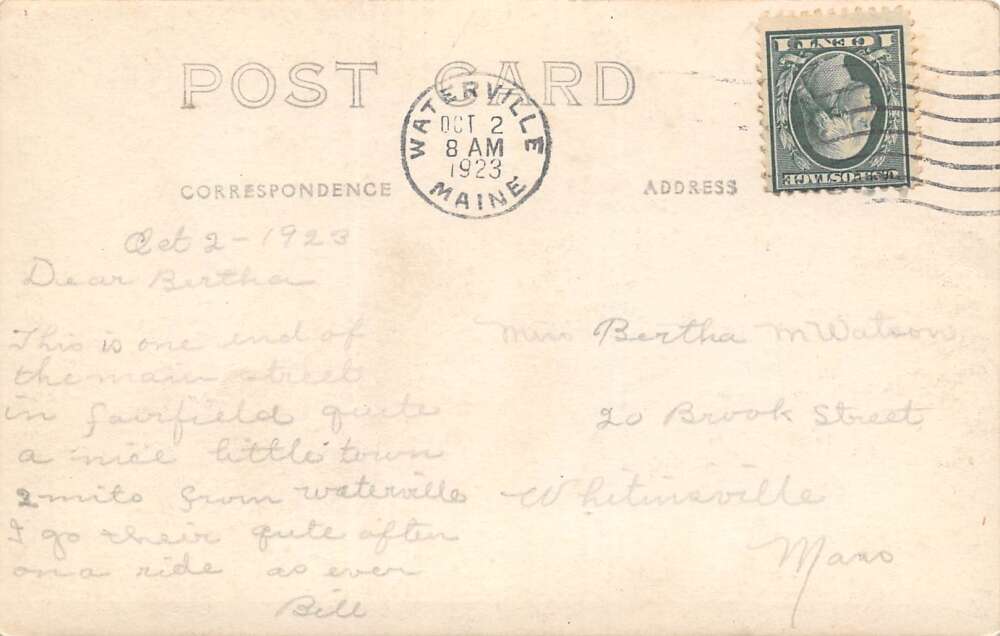 POST CARD
WATERVILLE
OCT 2
8 AM
1923
MAINE
1 CENT 1
U.S. POSTAGE
CORRESPONDENCE
ADDRESS
Oct 2 - 1923
Dear Bertha
This is one end of
the main street
in fairfield quite
a nice little town
2 mils from waterville
I go their quite often
on a ride as ever
Bill
Miss Bertha M Watson
20 Brook Street
Whitinsville
Mass